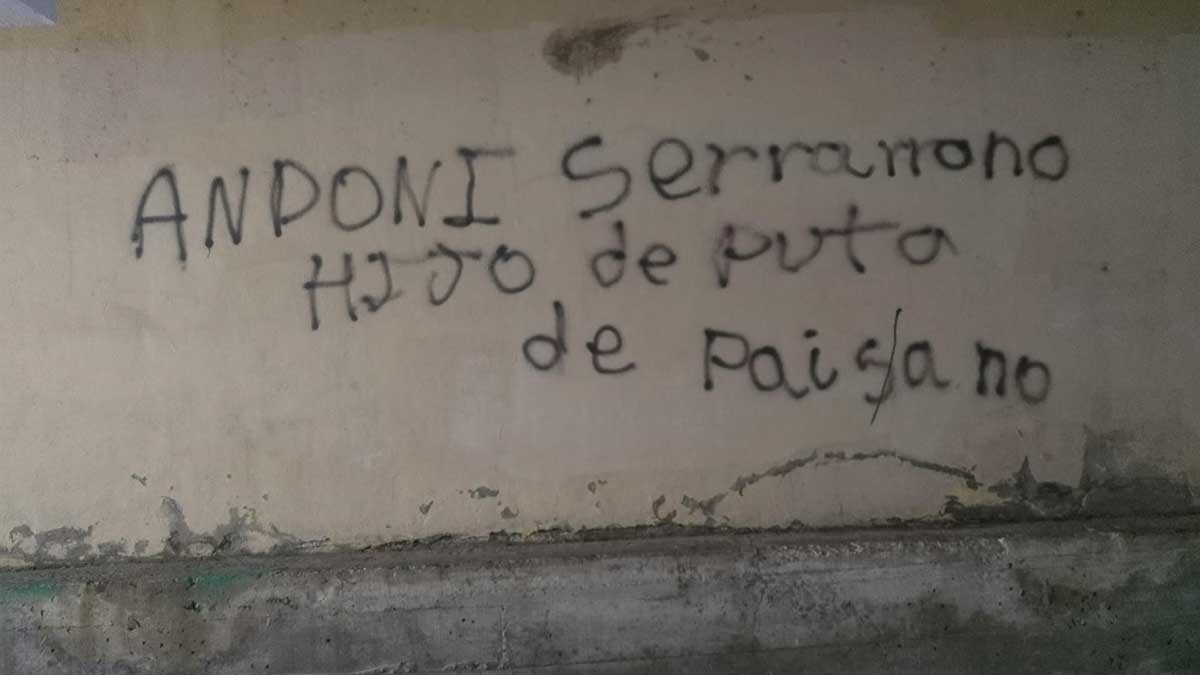 ANDONI Serranono
HIJO de puta
de paisano